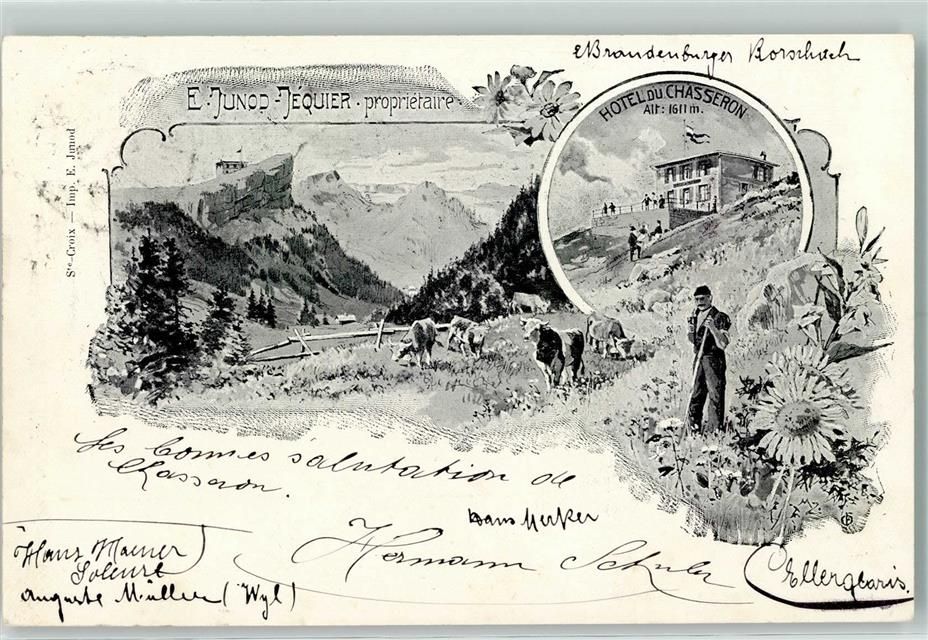 E Brandenburger Rorschach
E. JUNOD-JEQUIER. propriétaire.
HOTEL DU CHASSERON
Alt: 1611 m.
Ste-Croix — Imp. E. Junod
Les bonnes salutation de
Chasseron.
Hans Merker
Hermann Schuler
Hans
Soleure
Auguste Müller (Wyl)